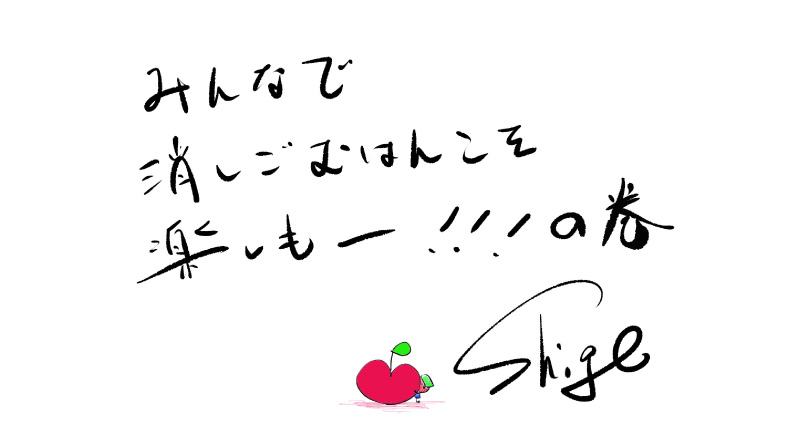 みんなで
消しごむはんこを
楽しもー!!!の巻
Shige